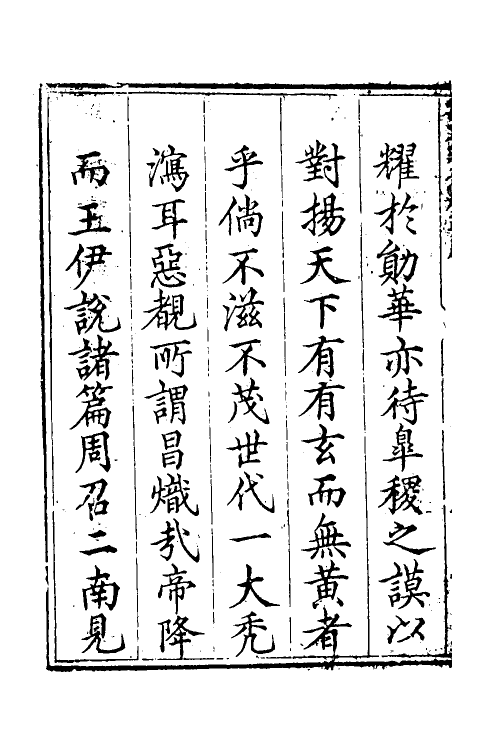 耀於勛華亦待臯稷之謨以
對揚天下有有玄而無黃者
乎倘不滋不茂世代一大禿
瀉耳惡覩所謂昌熾㢤帝降
而王伊說諸篇周召二南見